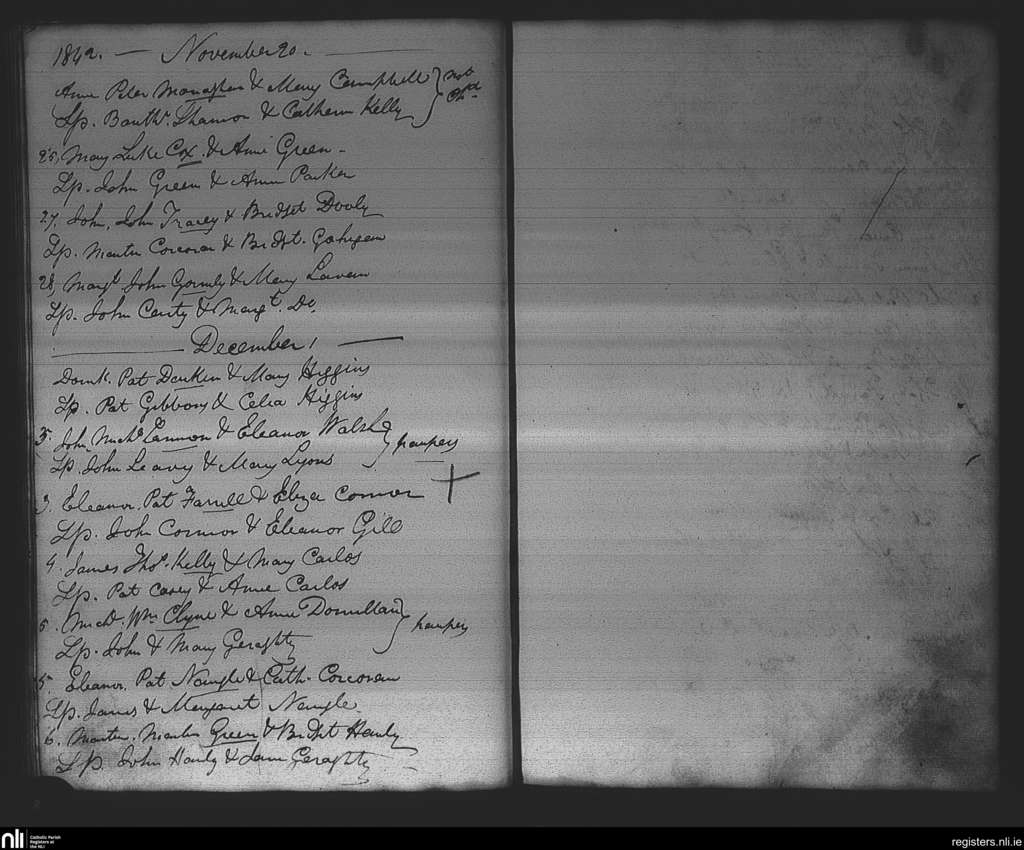 1842. — November 20. —
Anne Peter Monaghan & Mary Campbell } not
Sp. Barthw. Shannon & Catherin Kelly } Chd.
25, Mary Luke Cox & Anne Green -
Sp. John Green & Anne Parker
27, John, John Tracey & Bridget Dooly
Sp. Martin Corcoran & Bridget
28, Margt. John Gormly & Mary Lavan
Sp. John Canty & Margt. Do.
— December 1 —
Domk. Pat Durkin & Mary Higgins
Sp. Pat Gibbons & Celia Higgins
3. John, Michl. Lannon & Eleanor Walsh } paupers
Sp. John Leavy & Mary Lyons
3. Eleanor. Pat Farrell & Eliza Connor +
Sp. John Connor & Eleanor Gill
4. James Thos. Kelly & Mary Carlos
Sp. Pat Casey & Anne Carlos
5. Michl. Wm. Clyne & Anne Donnellan } paupers
Sp. John & Mary Geraghty
5. Eleanor. Pat Nangle & Cath. Corcoran
Sp. James & Margaret Nangle
6. Martin. Martin Green & Bridget Hanly
Sp. John Hanly & Geraghty
nli Catholic Parish
Registers at
the NLI
registers.nli.ie